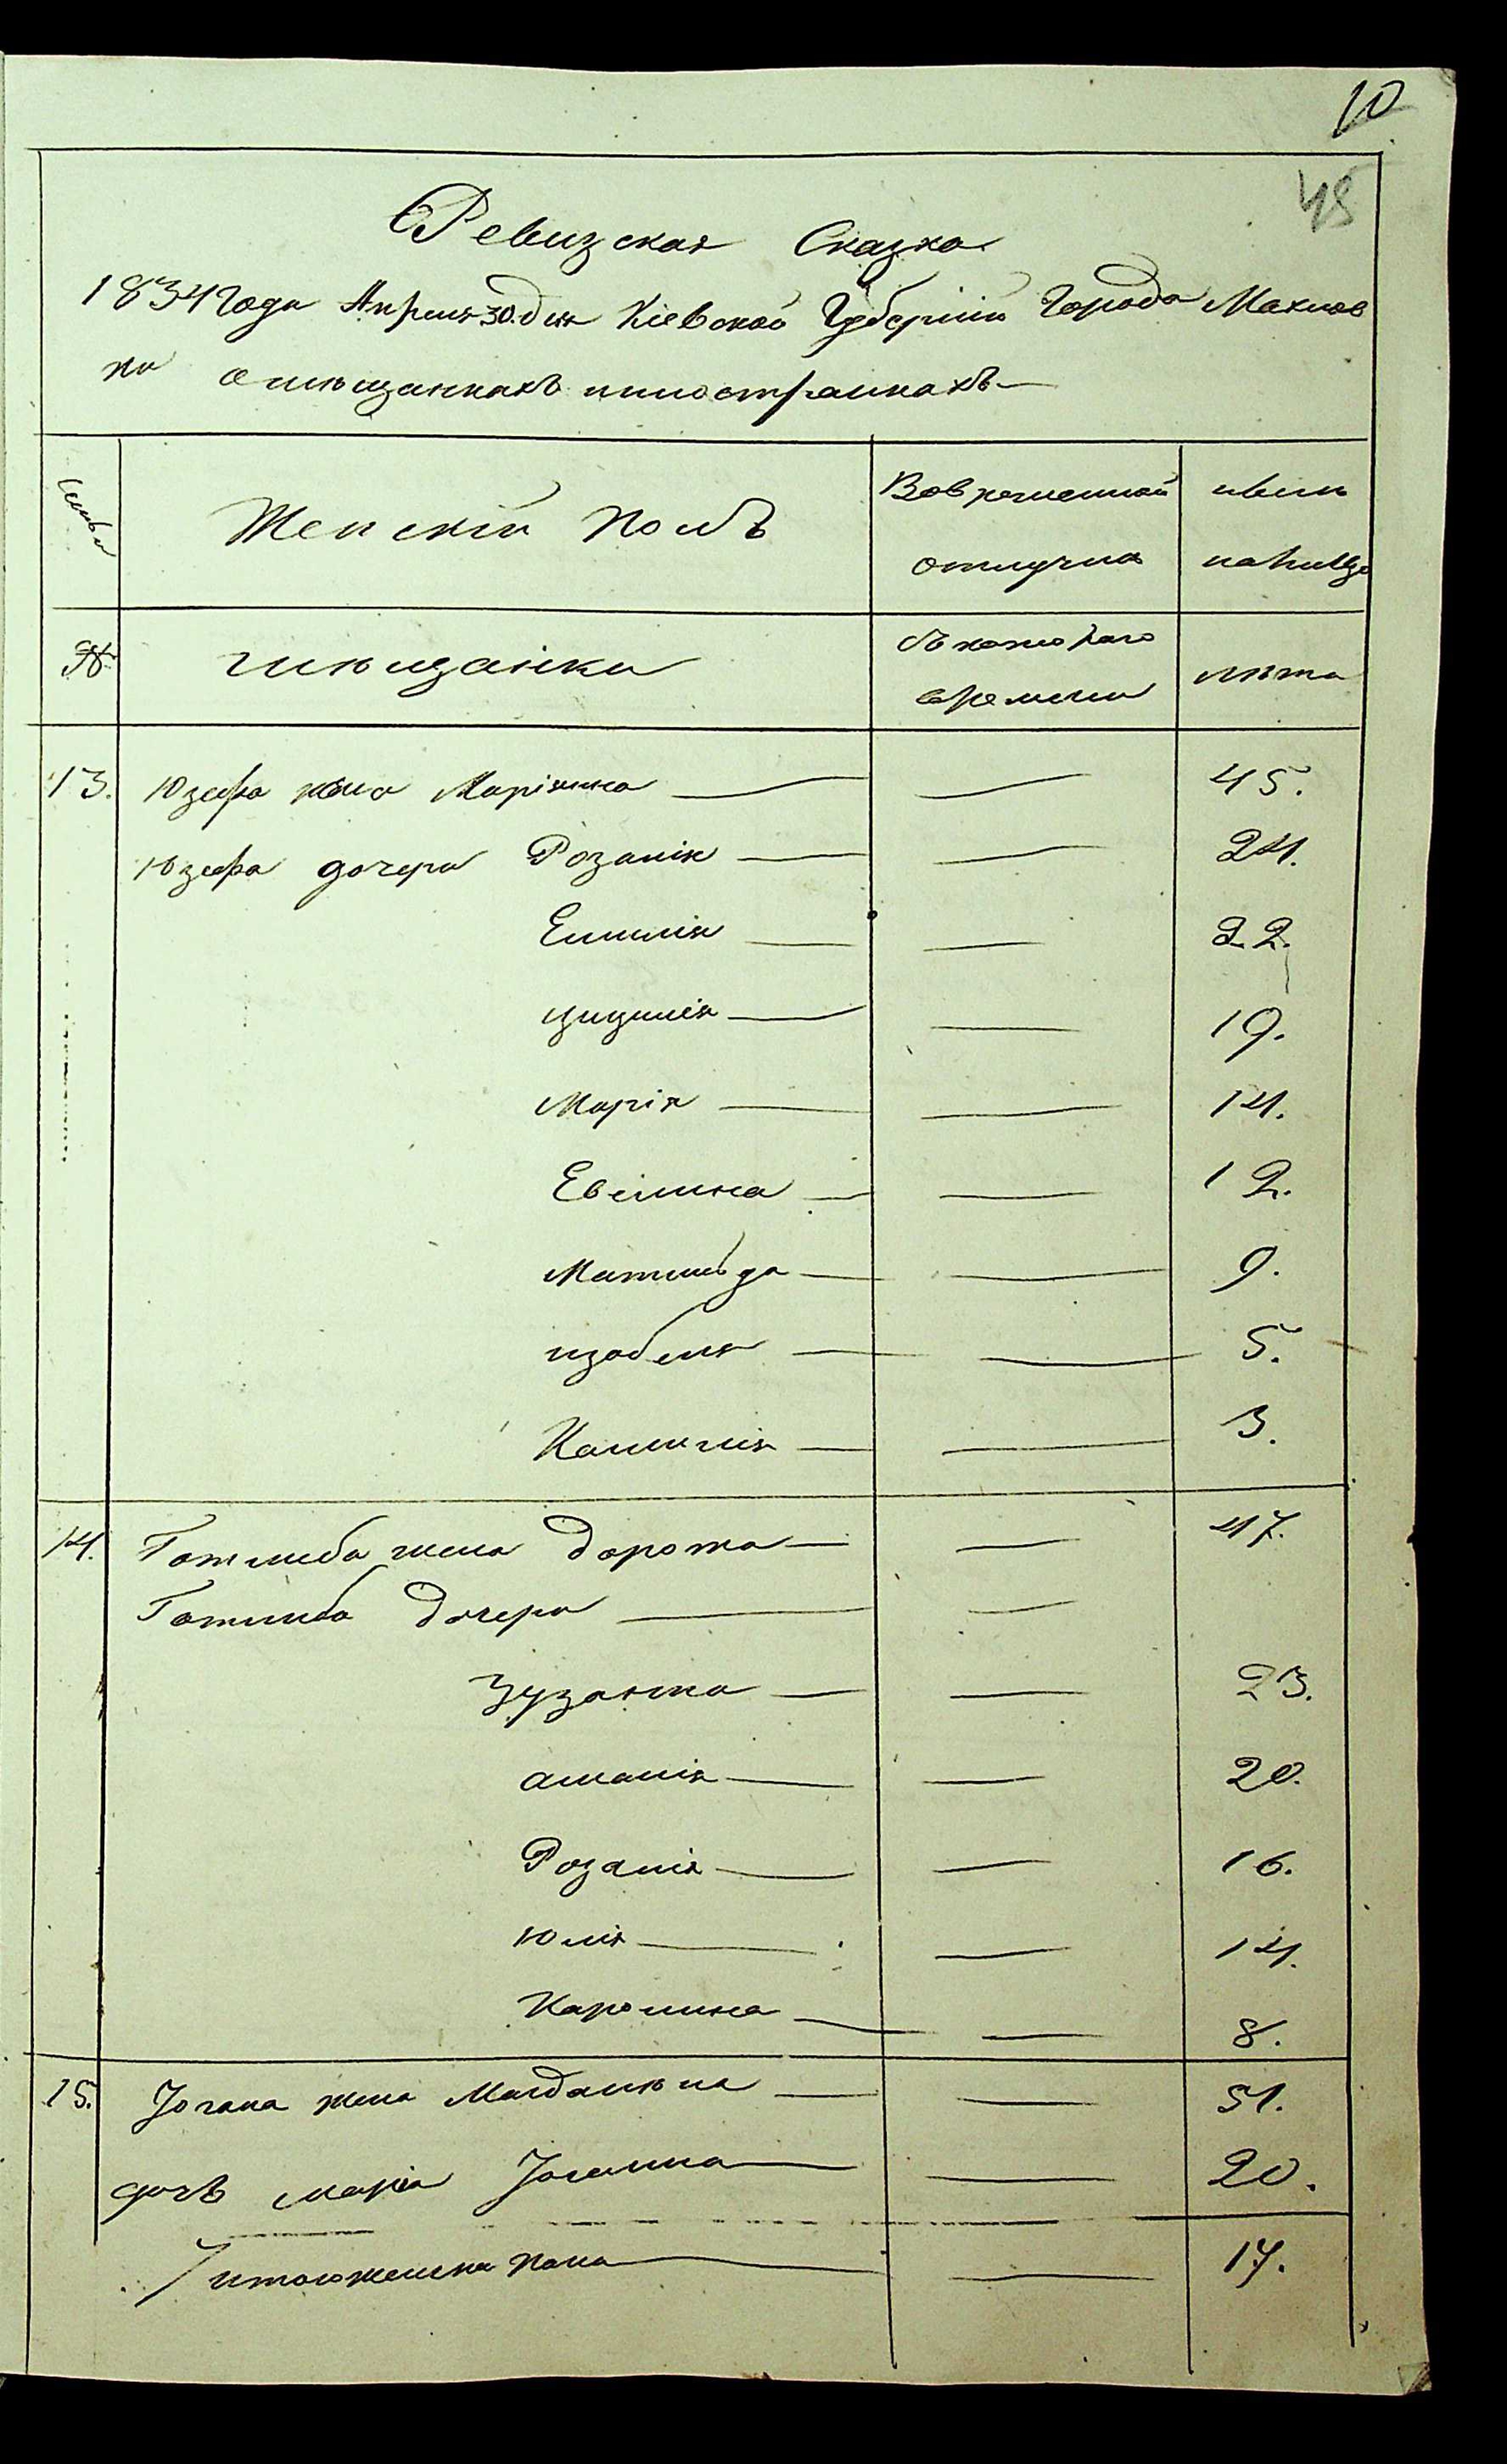 10
48
Ревизская Сказка
1834 Года Апреля 30. дня Кіевской Губерніи Города Махнов
ки омѣщанкахъ иностранкахъ
Семьи Женскій полъ Вовременной ныне
отлучки налицо
№ мѣщанки Съ котораго лѣта
времени
13. Юзефа жена Маріянна 45.
Юзефа дочери Розалія 24.
Емилія 22.
цицилія 19.
Марія 14.
Евелина 12.
Матильда 9.
изабеля 5.
Камилія 3.
14. Готлиба жена Дорота 47.
Готлиба Дочери
Зузанна 23.
амалія 20.
Розалія 16.
Юлія 14.
Каролина 8.
15. Іогана жена Магдалѣна 51.
дочь Марія Іоганна 20.
итого женска пола 17.